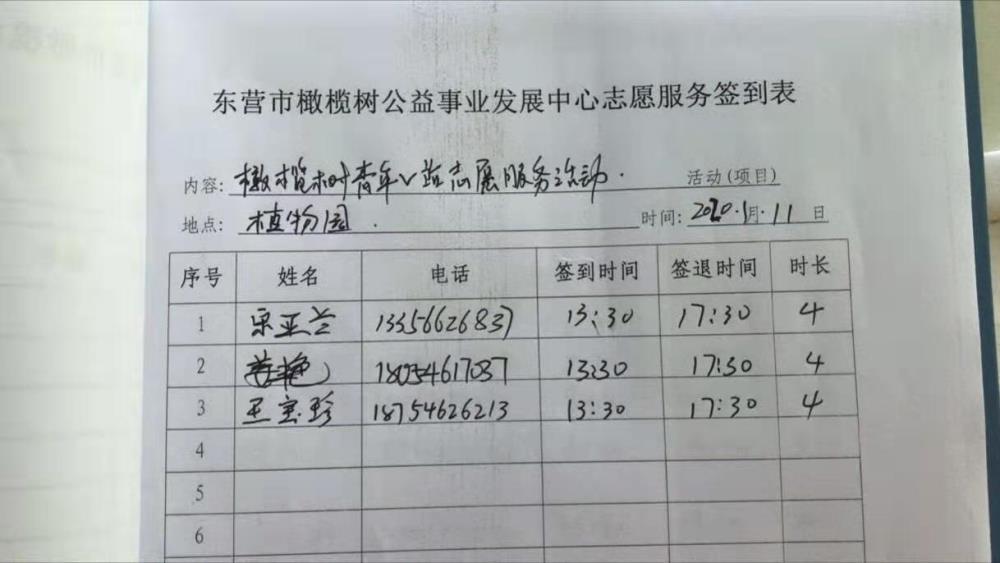 东营市橄榄树公益事业发展中心志愿服务签到表
内容: 橄榄树青年V站志愿服务活动. 活动(项目)
地点: 植物园. 时间: 2020.1月.11日
序号 姓名 电话 签到时间 签退时间 时长
1 宋亚兰 13356626837 13:30 17:30 4
2 18054617087 13:30 17:30 4
3 王宝珍 18754626213 13:30 17:30 4
4
5
6